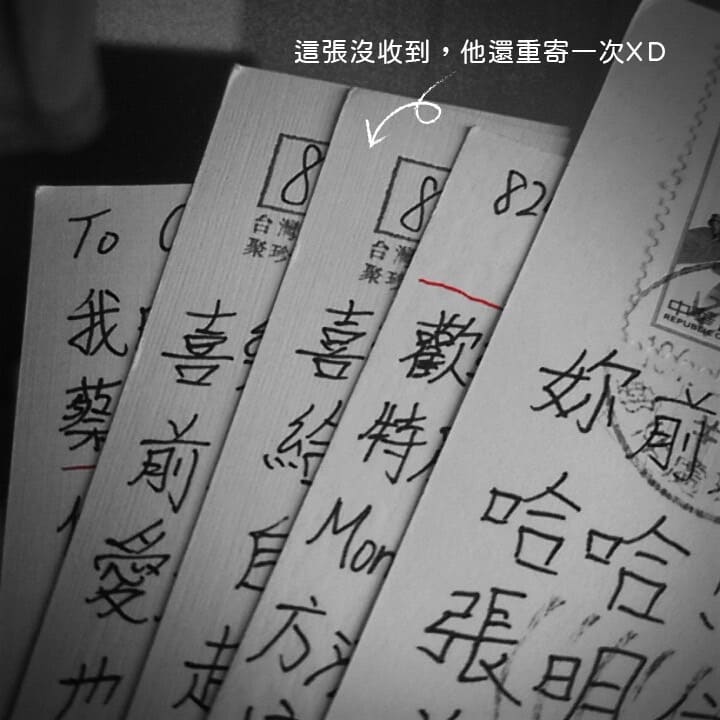 這張沒收到，他還重寄一次XD
To
我
蔡
8
台灣
聚珍
喜
前
愛
也
8
台灣
聚珍
喜
給
自
走
82
歡
特
Mon
方
中華
REPUBLIC O
妳前
哈哈
張明